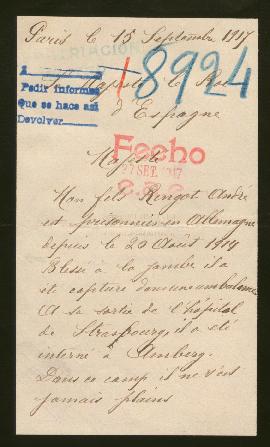 Paris le 15 Septembre 1917
18924
A
Pedir informes
Que se hace así
Devolver
A Majesté le Roi
d'Espagne
Fecho
27 SET. 1917
Majesté
Mon fils Ringot André
est prisonnier en Allemagne
depuis le 20 Août 1914
Blessé à la jambe il a
été capturé dans une ambulance
A sa sortie de l'hôpital
de Strasbourg, il a été
interné à Amberg.
Dans ce camp il ne s'est
jamais plaint